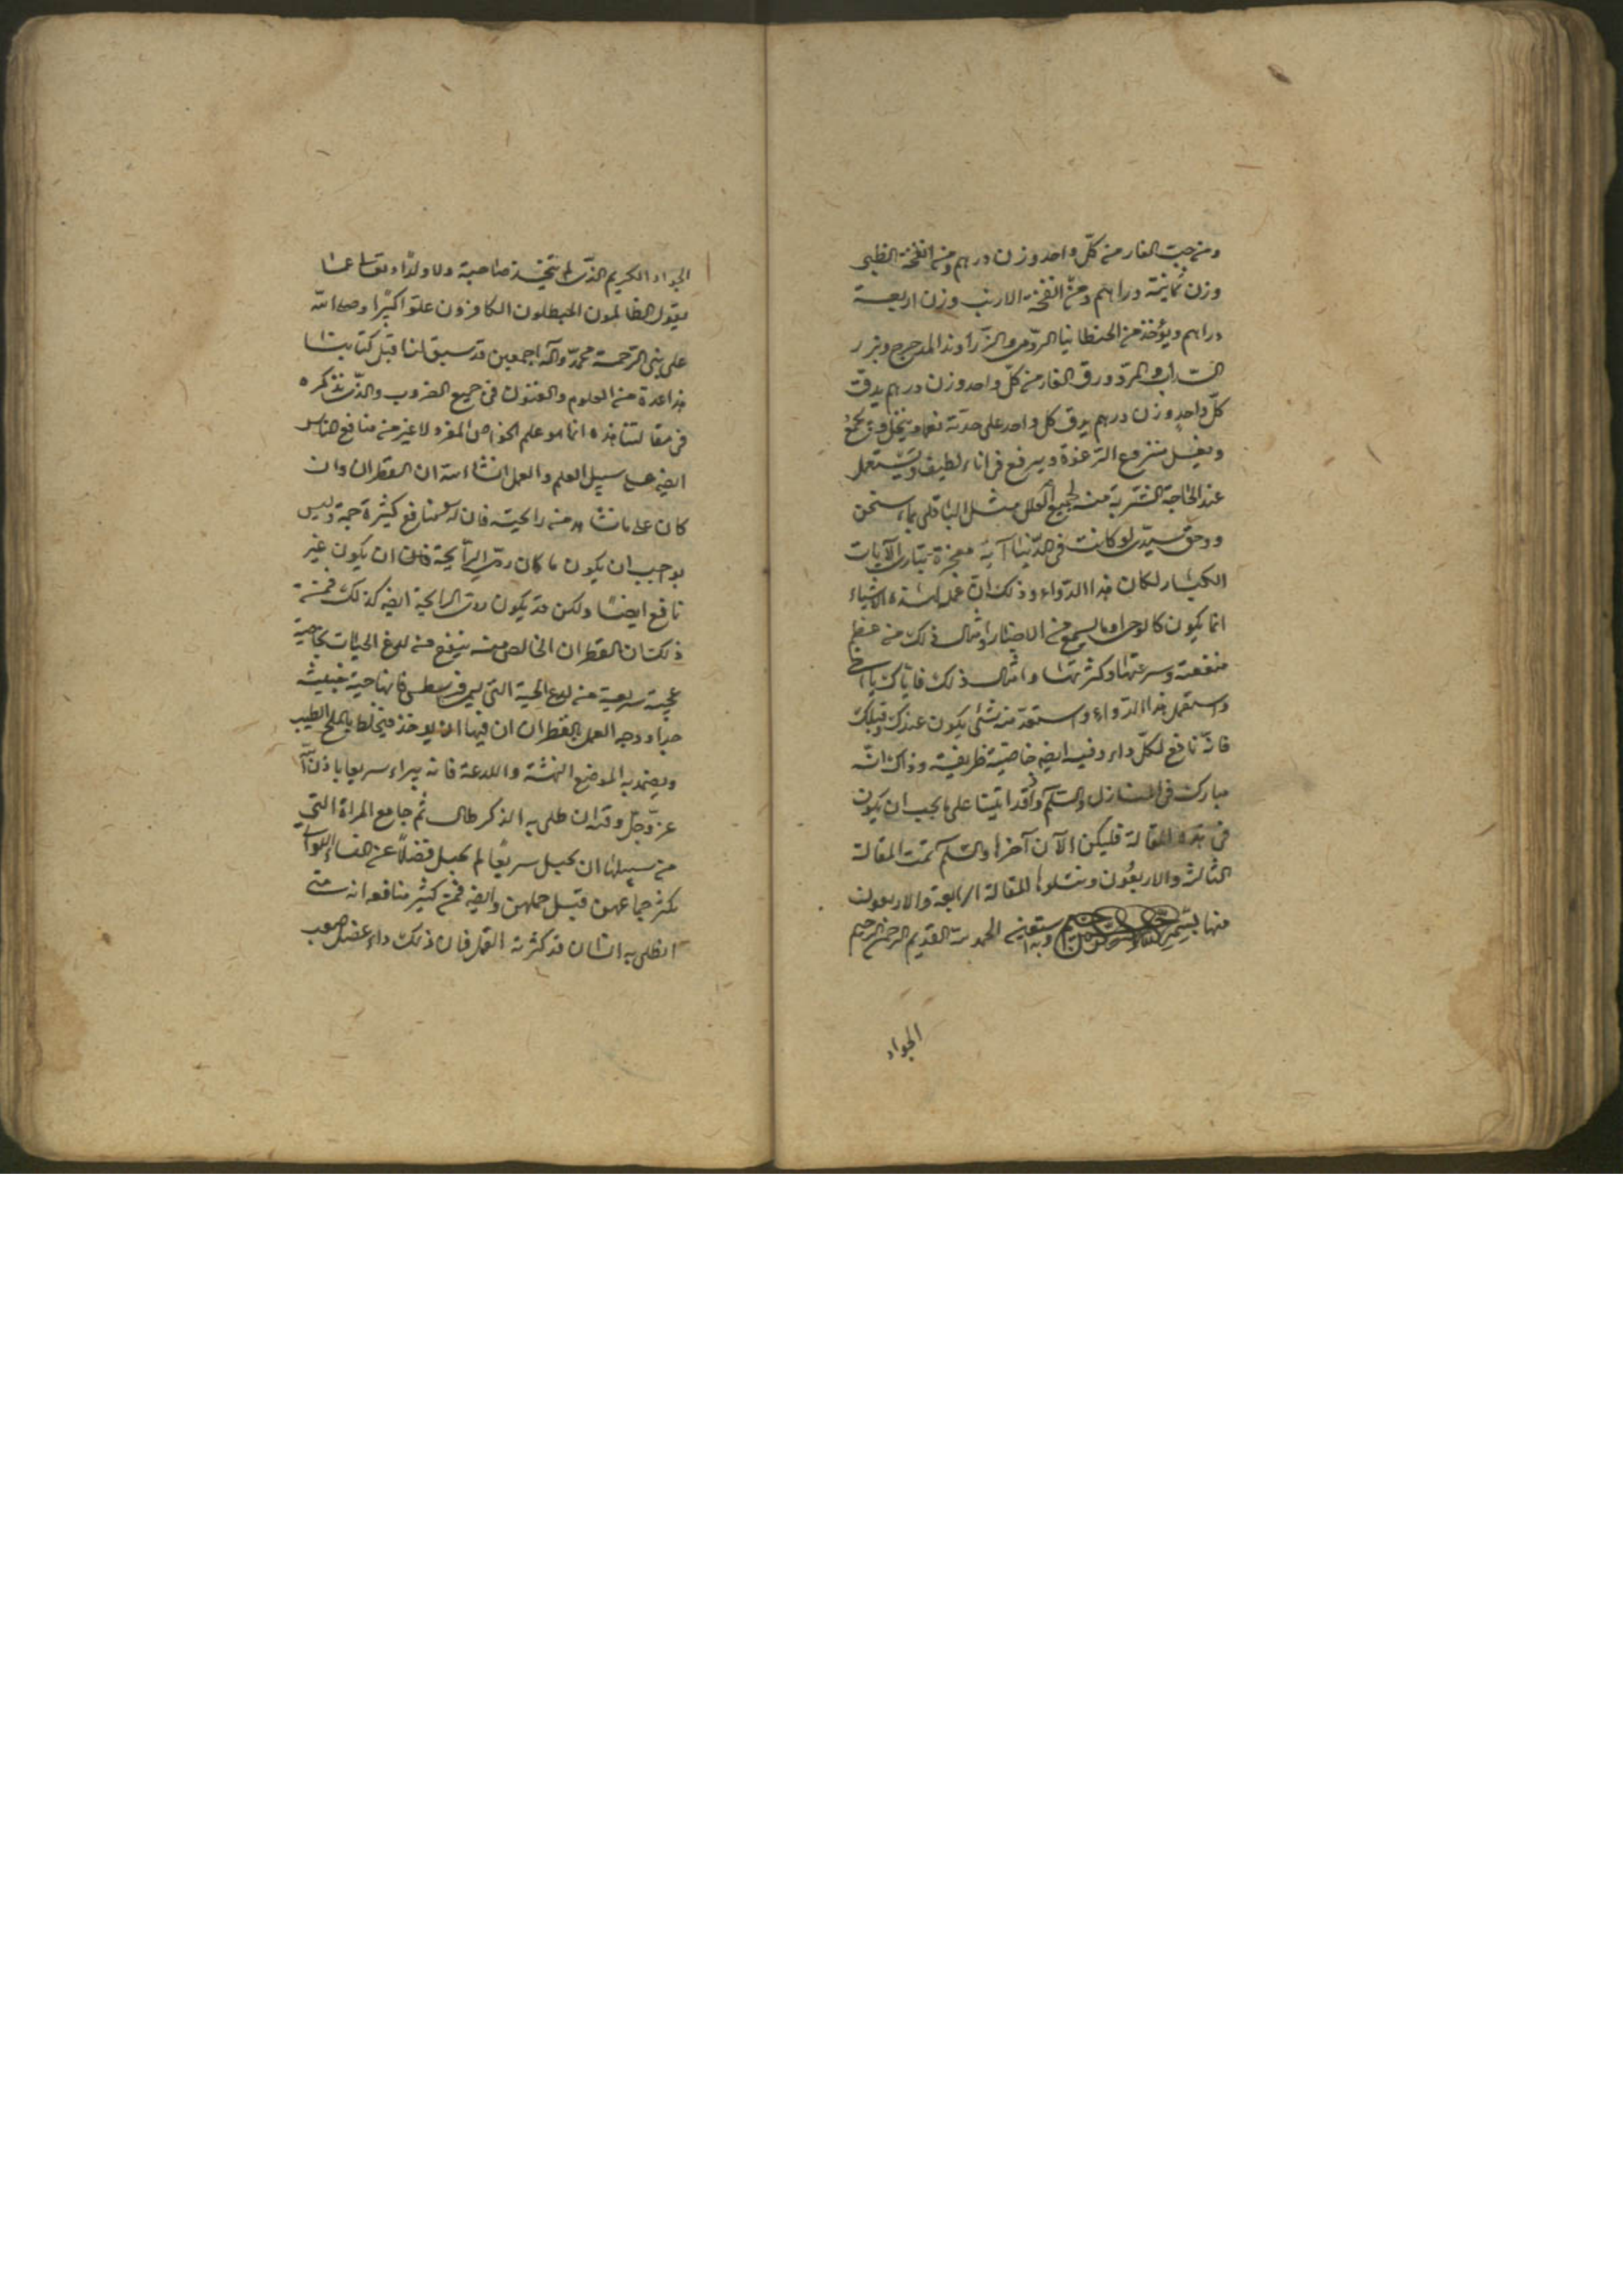 ومن حب الغار من كلّ واحد وزن درهم ومن انفخة الظبى
وزن ثمانية دراهم ومن انفخة الارنب وزن اربعة
دراهم ويؤخذ من الجنطيانا الرومى والزراوند المدحرج وبزر
السداب والمر وورق الغار من كلّ واحد وزن درهم يدق
كلّ واحد وزن درهم يدق كل واحد على حدته نعما وينخل ويجمع
بعسل منزوع الرغوة ويرفع فى اناء لطيف ويستعمل
عند الحاجة الشربة منه لجميع العلل مثل الباقلى بماء سخن
ووحق سيدى لو كانت فى الدنيا آية معجزة تبارى الآيات
الكبار لكان هذا الدواء وذلك انّ عمل هذه الاشياء
انما يكون كالوحى او ما يسمع من الاخبار وامثال ذلك من عظم
منفعته وسرعتها وكثرتها وامثال ذلك فاياك يا اخى
واستعمل هذا الدواء واستعدّ منه شئ يكون عندك وقبلك
فانّه نافع لكلّ داء وفيه ايضه خاصيّة ظريفة وذاك انّه
مبارك فى المنازل والسّلم واذ قد اتينا على ما يجب ان يكون
فى هذه المقالة فليكن الآن آخرها والسّلم تمت المقالة
الثالثة والاربعُون وتتلوها المقالة الرابعة والاربعون
منها بسم الله الرحمن الرحيم وبه استعين الحمد لله القديم الرحمن الرحيم
الجواد
الجواد الكريم الذى لم يتخذ صاحبة ولا ولدًا وتعالى عمّا
يقول الظالمون المبطلون الكافرون علوّا كبيرًا وصلى الله
على نبى الرحمة محمد وآله اجمعين قد سبق لنا قبل كتابنا
هذا عدة من العلوم والفنون فى جميع الضروب والذى نذكره
فى مقالتنا هذه انما هو علم الخواص المفرد لا غير من منافع الناس
ايضه على سبيل العلم والعمل انشاء الله ان القطران وان
كان على ما نشاهد من رايحته فان له لمنافع كثيرة جمة وليس
يوجب ان يكون ما كان ردى الرايحة ان يكون غير
نافع ايضًا ولكن قد يكون ردى الرايحة ايضه كذلك فمن
ذلك ان القطران الخالص منه ينفع من لدغ الحيات بخاصية
عجيبة سريعة من لدغ الحية التى فانها حية خبيثة
جدا ووجه العمل بالقطران ان فيها ان يؤخذ فيخلط بالملح الطيب
ويضمد به الموضع النهشة واللدغة فانه يبراء سريعا باذن الله
عزّ وجلّ وقد ان طلى به الذكر طال ثم جامع المراة التى
من سبيلها ان تحبل سريعًا لم تحبل فضلاً عن النساء اللواتى
يكثر جماعهن قبل حملهن وايضه فمن كثير منافعه انه متى
اطلى به انسان قد كثر به القمل فان ذلك داء عضل صعب